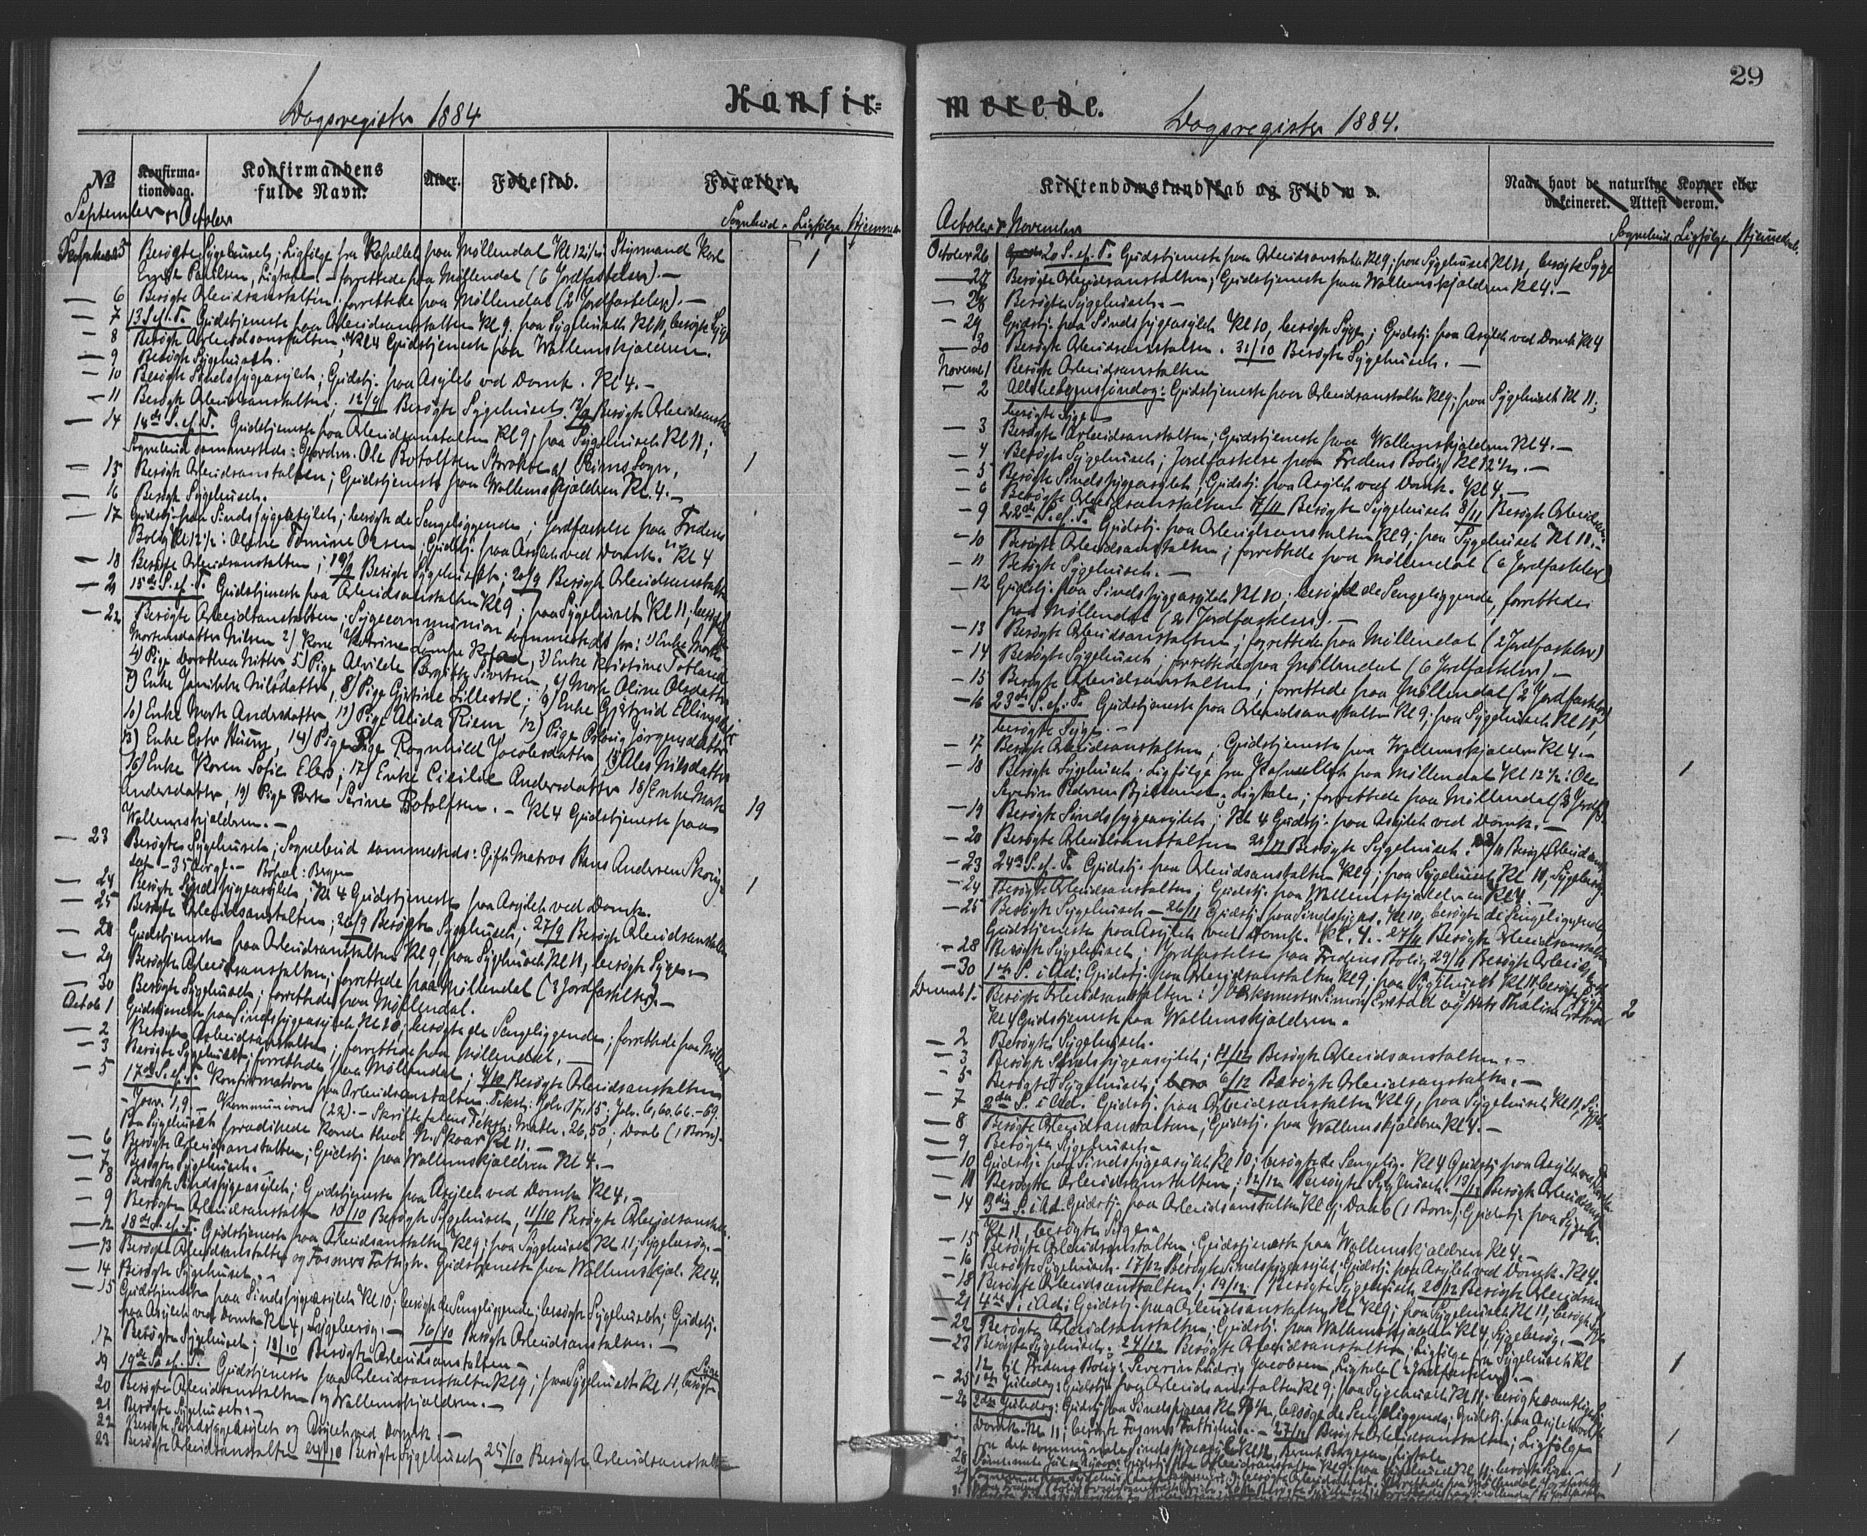 29
Konfir-
merede.
Dagsregister 1884
Dagsregister 1884.
№ Konfirma-tionsdag. Konfirmandens fulde Navn. Alder. Fødested. Forældre
September & October
Sognebud. Ligfølge. Stjernen
5 Besøgte Sygehuset; Ligfølge fra Kapellet paa Møllendal Kl 12½: Styrmand Karl
Paulsen, Ligtale – forrettede paa Møllendal (6 Jordfæstelser). – 1
— 6 Besøgte Arbeidsanstalten; forrettede paa Møllendal (2 Jordfæstelser). –
— 7 13 S. ef. T. Gudstjeneste paa Arbeidsanstalten Kl 9. paa Sygehuset Kl 11, besøgte Syge
— 8 Besøgte Arbeidsanstalten; Kl 4 Gudstjeneste paa Wallemskjældren.
— 9 Besøgte Sygehuset.
— 10 Besøgte Sindssygeasylet; Gudstj. paa Asylet ved Domk. Kl 4. –
— 11 Besøgte Arbeidsanstalten. 12/9 Besøgte Sygehuset. 13/9 Besøgte Arbeidsanstalten
— 14 14de S. ef. T. Gudstjeneste paa Arbeidsanstalten Kl 9; paa Sygehuset Kl 11;
Sognebud sammesteds: Gaardm. Ole Botolfsen af Sogn, 1
— 15 Besøgte Arbeidsanstalten; Gudstjeneste paa Wallemskjældren Kl. 4. –
— 16 Besøgte Sygehuset.
— 17 Gudstj. paa Sindssygeasylet; besøgte de Sengeliggende; Jordfæstelse paa Fredens
Bolig Kl 12½: Oline Tomine Olsen; Gudstj. paa Asylet ved Domk. Kl 4
— 18 Besøgte Arbeidsanstalten; 19/9 Besøgte Sygehuset; 20/9 Besøgte Arbeidsanstalten
— 21 15de S. ef. T. Gudstjeneste paa Arbeidsanstalten Kl 9; paa Sygehuset Kl 11;
— 22 Besøgte Arbeidsanstalten; Sygecommunion sammesteds for: 1) Enke
Mortensdatter Nilsen 2) Kone Katrine 3) Enke Kristine
4) Pige Dorothea Nitter 5) Pige Alvilde Birgitte Sivertsen, 6) Oline Olsdatter
7) Enke Jannikke Nilsdatter, 8) Pige Gjertine Lillestøl; 9) Enke Gjertrud
10) Enke Marte Andersdatter 11) Pige Alida Riem 12) Pige Jørgensdatter
13) Enke Ester 14) Pige Ragnhild Jacobsdatter 15) Nilsdatter
16) Enke Karen Sofie 17) Enke Cicilie Andersdatter 18) Enke Marte
Andersdatter, 19) Pige Serine Botolfsen. – Kl 4 Gudstjeneste paa 19
Wallemskjældren. –
— 23 Besøgte Sygehuset; Sognebud sammesteds: Gift Matros Hans Andersen
35 – Bopæl: Bergen 1
— 24 Besøgte Sindssygeasylet, Kl 4 Gudstjeneste paa Asylet ved Domk.
— 25 Besøgte Arbeidsanstalten; 26/9 Besøgte Sygehuset. 27/9 Besøgte Arbeidsanstalten
— 28 Gudstjeneste paa Arbeidsanstalten Kl 9; paa Sygehuset Kl 11, besøgte Syge. –
— 29 Besøgte Arbeidsanstalten; forrettede paa Møllendal (3 Jordfæstelser). –
— 30 Besøgte Sygehuset; forrettede paa Møllendal.
Octob 1 Gudstjeneste paa Sindssygeasylet Kl 10; besøgte de Sengeliggende; forrettede paa
— 2 Besøgte Arbeidsanstalten; forrettede paa Møllendal. –
— 3 Besøgte Sygehuset; forrettede paa Møllendal; 4/10 Besøgte Arbeidsanstalten
— 5 17de S. ef. T. Konfirmation paa Arbeidsanstalten. Tekst: Joh. 17,15; Joh. 6, 66. – 69.
– 1,9. – Kommunion (22) – Skriftetalens Tekst: Math. 26,50; Daab (1 Barn). –
Paa Sygehuset prædikede Kand. theol. N. Skaar Kl 11. –
— 6 Besøgte Arbeidsanstalten; Gudstj. paa Wallemskjældren Kl 4. –
— 7 Besøgte Sygehuset. –
— 8 Besøgte Sindssygeasylet; Gudstjeneste paa Asylet ved Domk. Kl 4. –
— 9 Besøgte Arbeidsanstalten 10/10 Besøgte Sygehuset, 11/10 Besøgte Arbeidsanstalten.
— 12 18de S. ef. T. Gudstjeneste paa Arbeidsanstalten Kl 9; paa Sygehuset Kl 11; Sygebesøg. –
— 13 Besøgte Arbeidsanstalten og Fattigh. Gudstjeneste paa Wallemskjæl. Kl 4.
— 14 Besøgte Sygehuset. –
— 15 Gudstjeneste paa Sindssygeasylet Kl 10; besøgte de Sengeliggende; besøgte Sygehuset; Gudstj.
paa Asylet ved Domk. Kl 4, Sygebesøg. – 16/10 Besøgte Arbeidsanstalten. –
17 Besøgte Sygehuset; 18/10 Besøgte Arbeidsanstalten –
19 19de S. ef. T. Gudstjeneste paa Arbeidsanstalten Kl 9; paa Sygehuset Kl 11, besøgte Syge
20 Besøgte Arbeidsanstalten og Wallemskjældren. –
21 Besøgte Sygehuset. –
22 Besøgte Sindssygeasylet og Asylet ved Domk. –
23 Besøgte Arbeidsanstalten 24/10 Besøgte Sygehuset 25/10 Besøgte Arbeidsanstalten
Kristendomskundskab og Flid m. v.
Naar havt de naturlige Kopper eller vaccineret. Attest derom.
October & November
Sognebud. Ligfølge. Stjernen
October 26 20 S. ef. T. Gudstjeneste paa Arbeidsanstalten Kl 9; paa Sygehuset Kl 11, besøgte Syge
— 27 Besøgte Arbeidsanstalten; Gudstjeneste paa Wallemskjældren Kl 4. –
— 28 Besøgte Sygehuset. –
— 29 Gudstj. paa Sindssygeasylet Kl 10, besøgte Syge; Gudstj. paa Asylet ved Domk Kl 4
— 30 Besøgte Arbeidsanstalten. 31/10 Besøgte Sygehuset. –
Novemb 1 Besøgte Arbeidsanstalten
— 2 Allehelgenssøndag: Gudstjeneste paa Arbeidsanstalten Kl 9; paa Sygehuset Kl 11;
besøgte Syge –
— 3 Besøgte Arbeidsanstalten; Gudstjeneste paa Wallemskjældren Kl 4. –
— 4 Besøgte Sygehuset; Jordfæstelse paa Fredens Bolig Kl 12½. –
— 5 Besøgte Sindssygeasylet, Gudstj. paa Asylet ved Domk. Kl 4. –
— 6 Besøgte Arbeidsanstalten 7/11 Besøgte Sygehuset 8/11 Besøgte Arbeidsan-
— 9 22de S. ef. T. Gudstj. paa Arbeidsanstalten Kl 9; paa Sygehuset Kl 11. –
— 10 Besøgte Arbeidsanstalten; forrettede paa Møllendal (6 Jordfæstelser)
— 11 Besøgte Sygehuset. –
— 12 Gudstj. paa Sindssygeasylet Kl 10; besøgte de Sengeliggende, forrettede
paa Møllendal (2 Jordfæstelser). –
— 13 Besøgte Arbeidsanstalten; forrettede paa Møllendal (2 Jordfæstelser)
— 14 Besøgte Sygehuset; forrettede paa Møllendal (6 Jordfæstelser). –
— 15 Besøgte Arbeidsanstalten; forrettede paa Møllendal (2 Jordfæstelser)
— 16 23de S. ef. T. Gudstjeneste paa Arbeidsanstalten Kl 9; paa Sygehuset Kl 11,
besøgte Syge. –
— 17 Besøgte Arbeidsanstalten; Gudstjeneste paa Wallemskjældren Kl 4. –
— 18 Besøgte Sygehuset. Ligfølge fra Kapellet paa Møllendal Kl 12½: Ole 1
Severin Pedersen Ligtale; forrettede paa Møllendal (3 Jordf).
— 19 Besøgte Sindssygeasylet; Kl 4 Gudstj. paa Asylet ved Domk. –
— 20 Besøgte Arbeidsanstalten 21/11 Besøgte Sygehuset. 22/11 Besøgte Arbeidsan
— 23 24de S. ef. T. Gudstj. paa Arbeidsanstalten Kl 9; paa Sygehuset Kl 11, Sygebesøg
— 24 Besøgte Arbeidsanstalten; Gudstj. paa Wallemskjældren Kl 4 –
— 25 Besøgte Sygehuset – 26/11 Gudstj. paa Sindssygeas. Kl 10, besøgte de Sengeliggende
Gudstjeneste paa Asylet ved Domk. Kl. 4. – 27/11 Besøgte Arbeidsanstalten
— 28 Besøgte Sygehuset; Jordfæstelse paa Fredens Bolig 29/11 Besøgte Arbeids
— 30 1ste S. i Ad: Gudstj. paa Arbeidsanstalten Kl 9; paa Sygehuset Kl 11 besøgte Syge
Decemb 1. Besøgte Arbeidsanstalten: Simon Erstad og 2
Kl 4 Gudstjeneste paa Wallemskjældren. –
— 2 Besøgte Sygehuset.
— 3 Besøgte Sindssygeasylet; 4/12 Besøgte Arbeidsanstalten. –
— 5 Besøgte Sygehuset; 6/12 Besøgte Arbeidsanstalten. –
— 7 2den S. i Ad. Gudstj. paa Arbeidsanstalten Kl 9, paa Sygehuset Kl 11,
— 8 Besøgte Arbeidsanstalten, Gudstj. paa Wallemskjældren Kl 4. –
— 9 Besøgte Sygehuset. –
— 10 Gudstj. paa Sindssygeasylet Kl 10; besøgte de Sengelig. Kl 4 Gudstj. paa Asylet ved Domk
— 11 Besøgte Arbeidsanstalten; 12/12 Besøgte Sygehuset. 13/12 Besøgte Arbeidsanst
— 14 3die S. i Ad. Gudstj. paa Arbeidsanstalten Kl 9; Daab (1 Barn); Gudstj. paa Sygehu.
Kl 11, besøgte Syge. –
— 15 Besøgte Arbeidsanstalten, Gudstjeneste paa Wallemskjældren Kl 4. –
— 16 Besøgte Sygehuset. 17/12 Besøgte Sindssygeasylet. Gudstj. paa Asylet ved Domk. Kl 4.
— 18 Besøgte Arbeidsanstalten; 19/12 Besøgte Sygehuset, 20/12 Besøgte Arbeidsan
— 21 4de S. i Ad: Gudstj. paa Arbeidsanstalten Kl 9; paa Sygehuset Kl 11, besøgte Syge
— 22 Besøgte Arbeidsanstalten; Gudstj. paa Wallemskjældren Kl 4, Sygebesøg. –
— 23 Besøgte Sygehuset. 24/12 Besøgte Arbeidsanstalten; Ligfølge fra Sygehuset Kl 1
12 til Fredens Bolig: Severin Ludvig Jacobsen Ligtale (2 Jordfæstelser). –
— 25 1ste Juledag: Gudstj. paa Arbeidsanstalten Kl 9; paa Sygehuset Kl 11. besøgte
— 26 2den Juledag: Gudstj. paa Sindssygeas Kl besøgte de Sengeliggende; Gudstj. paa Asylet ved
Domk. Kl 11; besøgte Fattighus. – 27/12 Besøgte Arbeidsanstalten; Ligfølge 1
fra det communale Sindssygeasyl Kl 12, Ligtale
— 28 Gudstj. paa Arbeidsanstalten Kl 9; paa Sygehuset Kl 11. besøgte Syge – 1